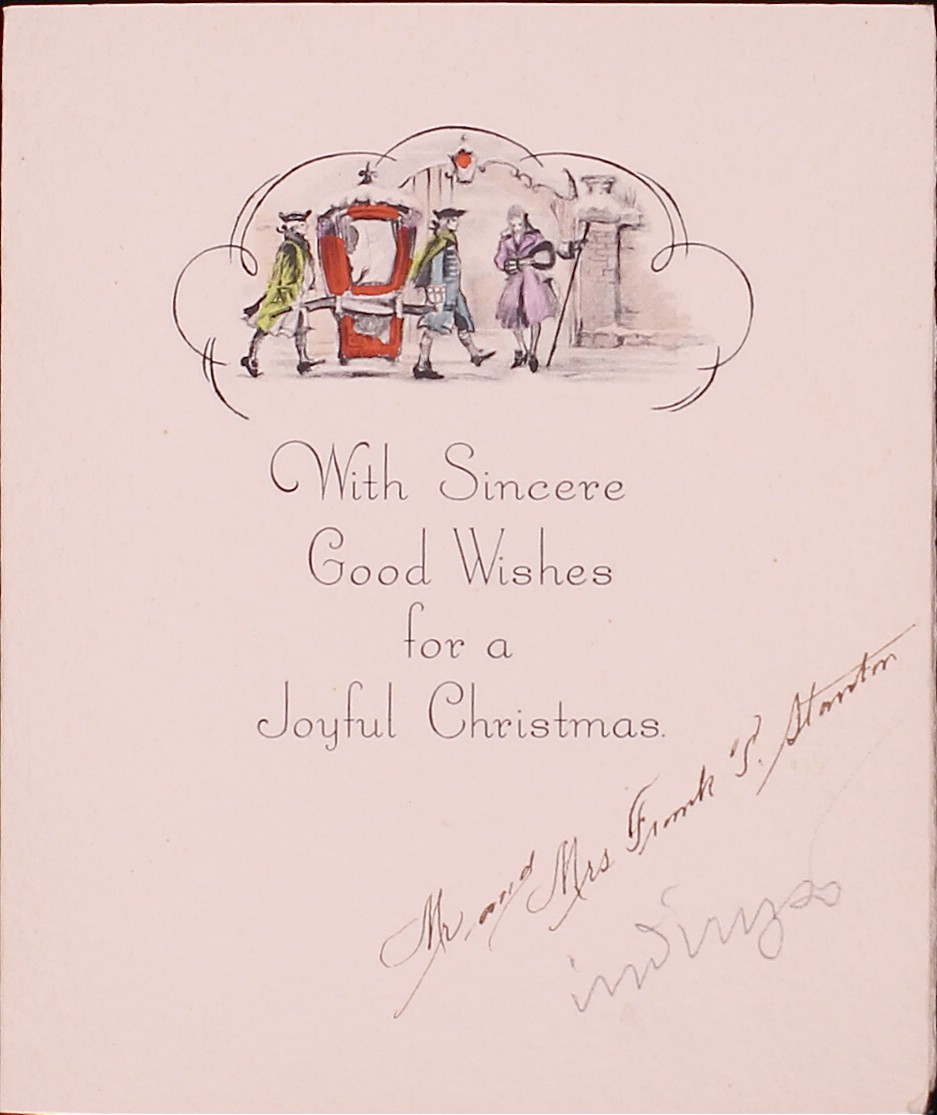 With Sincere
Good Wishes
for a
Joyful Christmas.
Mr and Mrs Frank S. Stanton